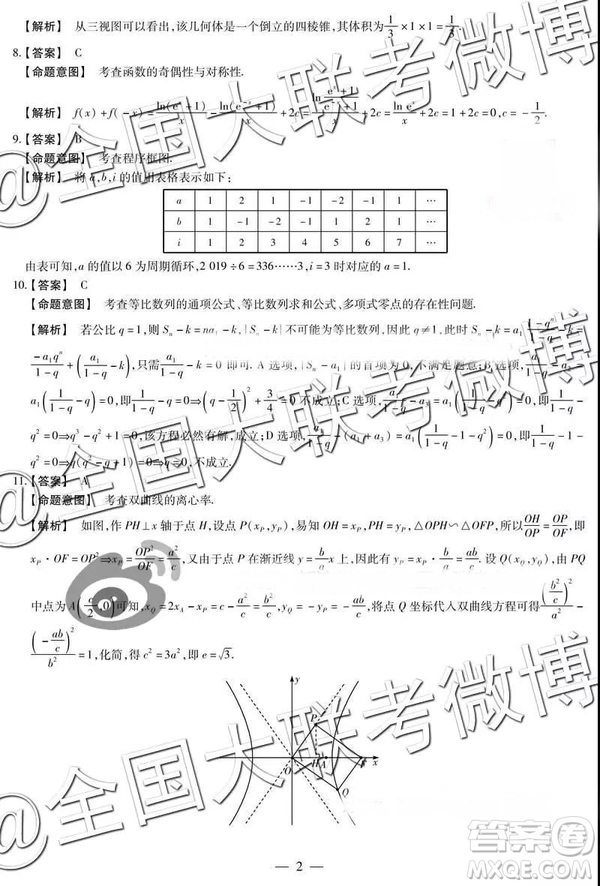 【解析】 从三视图可以看出,该几何体是一个倒立的四棱锥,其体积为 1/3 ×1×1= 1/3.
8.【答案】 C
【命题意图】 考查函数的奇偶性与对称性.
【解析】 f(x)+f(-x)=
+2c= ln(e^x)/x +2c=1+2c=0,c=- 1/2.
9.【答案】 B
【命题意图】 考查程序框图.
【解析】 将a,b,i的值用表格表示如下:
a 1 2 1 -1 -2 -1 1 …
b 1 -1 -2 -1 1 2 1 …
i 1 2 3 4 5 6 7 …
由表可知,a的值以6为周期循环,2 019÷6=336……3,i=3时对应的a=1.
10.【答案】 C
【命题意图】 考查等比数列的通项公式、等比数列求和公式、多项式零点的存在性问题.
【解析】 若公比q=1,则S_n-k=na_1-k,{S_n-k}不可能为等比数列,因此q≠1,此时S_n-k=
,只需 a_1/(1-q) -k=0即可. A选项,{S_n-a_1}的首项为0,不满足题意;B选项,
=0,即 1/(1-q) -q=0⇒(q- 1/2)^2+ 3/4=0不成立;C选项,
q^2=0⇒q^3-q^2+1=0,该方程必然有解,成立;D选项,
q^2=0⇒q(q^2-q+1)=0,不成立.
11.【答案】 A
【命题意图】 考查双曲线的离心率.
【解析】 如图,作PH⊥x轴于点H,设点P(x_P,y_P),易知OH=x_P,PH=y_P,△OPH∽△OFP,所以 OH/OP = OP/OF,即
x_P·OF=OP^2⇒x_P= OP^2/OF = a^2/c,又由于点P在渐近线y= b/a x上,因此有y_P= b/a·x_P= ab/c. 设Q(x_Q,y_Q),由PQ
中点为A(c/2,0)可知,x_Q=2x_A-x_P=c- a^2/c = b^2/c,y_Q=-y_P=- ab/c,将点Q坐标代入双曲线方程可得 (b^2/c)^2/a^2 -
(-ab/c)^2/b^2 =1,化简,得c^2=3a^2,即e=√3.
y
P
O
H
A
F
x
Q
— 2 —
@全国大联考微博
@全国大联考微博
@全国大联考微博
答案圈
MXQE.COM